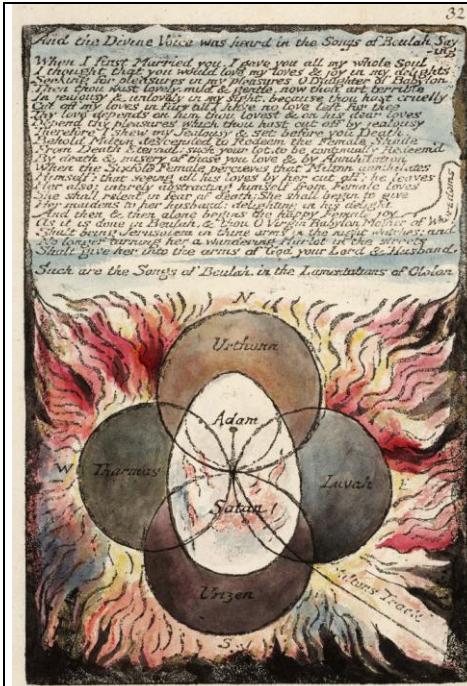 32
And the Divine Voice was heard in the Songs of Beulah Say
ing
When I first Married you, I gave you all my whole Soul
I thought that you would love my loves & joy in my delights
Seeking for pleasures in my pleasures O Daughter of Babylon
Then thou wast lovely, mild & gentle, now thou art terrible
In jealousy & unlovely in my sight, because thou hast cruelly
Cut off my loves in fury till I have no love left for thee
Thy love depends on him thou lovest & on his dear loves
Depend thy pleasures which thou hast cut off by jealousy
Therefore I shew my Jealousy & set before you Death.
Behold Milton descended to Redeem the Female Shade
From Death Eternal; such your lot, to be continually Redeem'd
By death & misery of those you love & by Annihilation
When the Sixfold Female percieves that Milton annihilates
Himself: that seeing all his loves by her cut off: he leaves
Her also: intirely abstracting himself from Female loves
She shall relent in fear of death: She shall begin to give
Her maidens to her husband: delighting in his delight
And then & then alone begins the happy Female joy
As it is done in Beulah, & thou O Virgin Babylon Mother of Whoredoms
Shalt bring Jerusalem in thine arms in the night watches; and
No longer turning her a wandering Harlot in the streets
Shalt give her into the arms of God your Lord & Husband.
Such are the Songs of Beulah in the Lamentations of Ololon
N
Urthona
Adam
W
Tharmas
Luvah
Satan
Urizen
Miltons Track
S